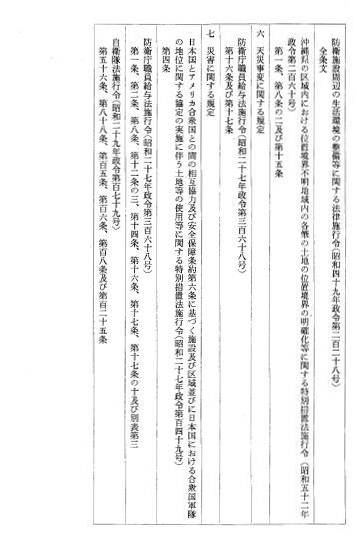 防衛施設周辺の生活環境の整備等に関する法律施行令（昭和四十九年政令第二百二十八号）
全条文
沖縄県の区域内における位置境界不明地域内の各筆の土地の位置境界の明確化等に関する特別措置法施行令（昭和五十二年
政令第二百六十号）
第一条、第八条の二及び第十五条
六　天災事変に関する規定
防衛庁職員給与法施行令（昭和二十七年政令第三百六十八号）
第十六条及び第十七条
七　災害に関する規定
日本国とアメリカ合衆国との間の相互協力及び安全保障条約第六条に基づく施設及び区域並びに日本国における合衆国軍隊
の地位に関する協定の実施に伴う土地等の使用等に関する特別措置法施行令（昭和二十七年政令第百四十九号）
第四条
防衛庁職員給与法施行令（昭和二十七年政令第三百六十八号）
第一条、第二条、第八条、第十二条の三、第十四条、第十六条、第十七条、第十七条の十及び別表第三
自衛隊法施行令（昭和二十九年政令第百七十九号）
第五十六条、第八十八条、第百五条、第百六条、第百八条及び第百二十五条